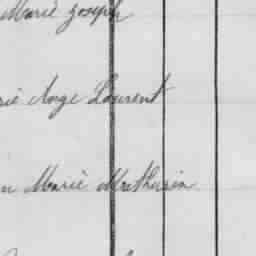 Marie Joseph
rie Ange Laurent
n Marie Mathurin